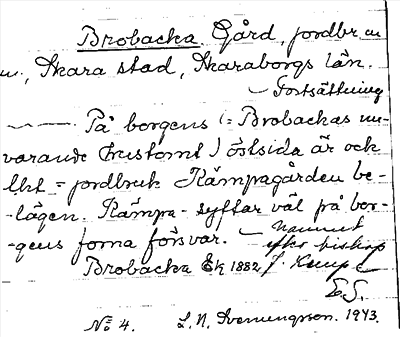 Brobacka. Gård, jordbr. m
m., Skara stad, Skaraborgs län.
— Fortsättning
På borgens (= Brobackas nu-
varande trustomt) östsida är ock
ett = jordbruk Kämpagården be-
-lägen. Kämpa- syftar väl på bor-
-gens forna försvar. — Namnet
efter biskop
Brobacka Ek 1882 J. Kemp
E.S.
No 4. L. N. Svenungsson. 1943.